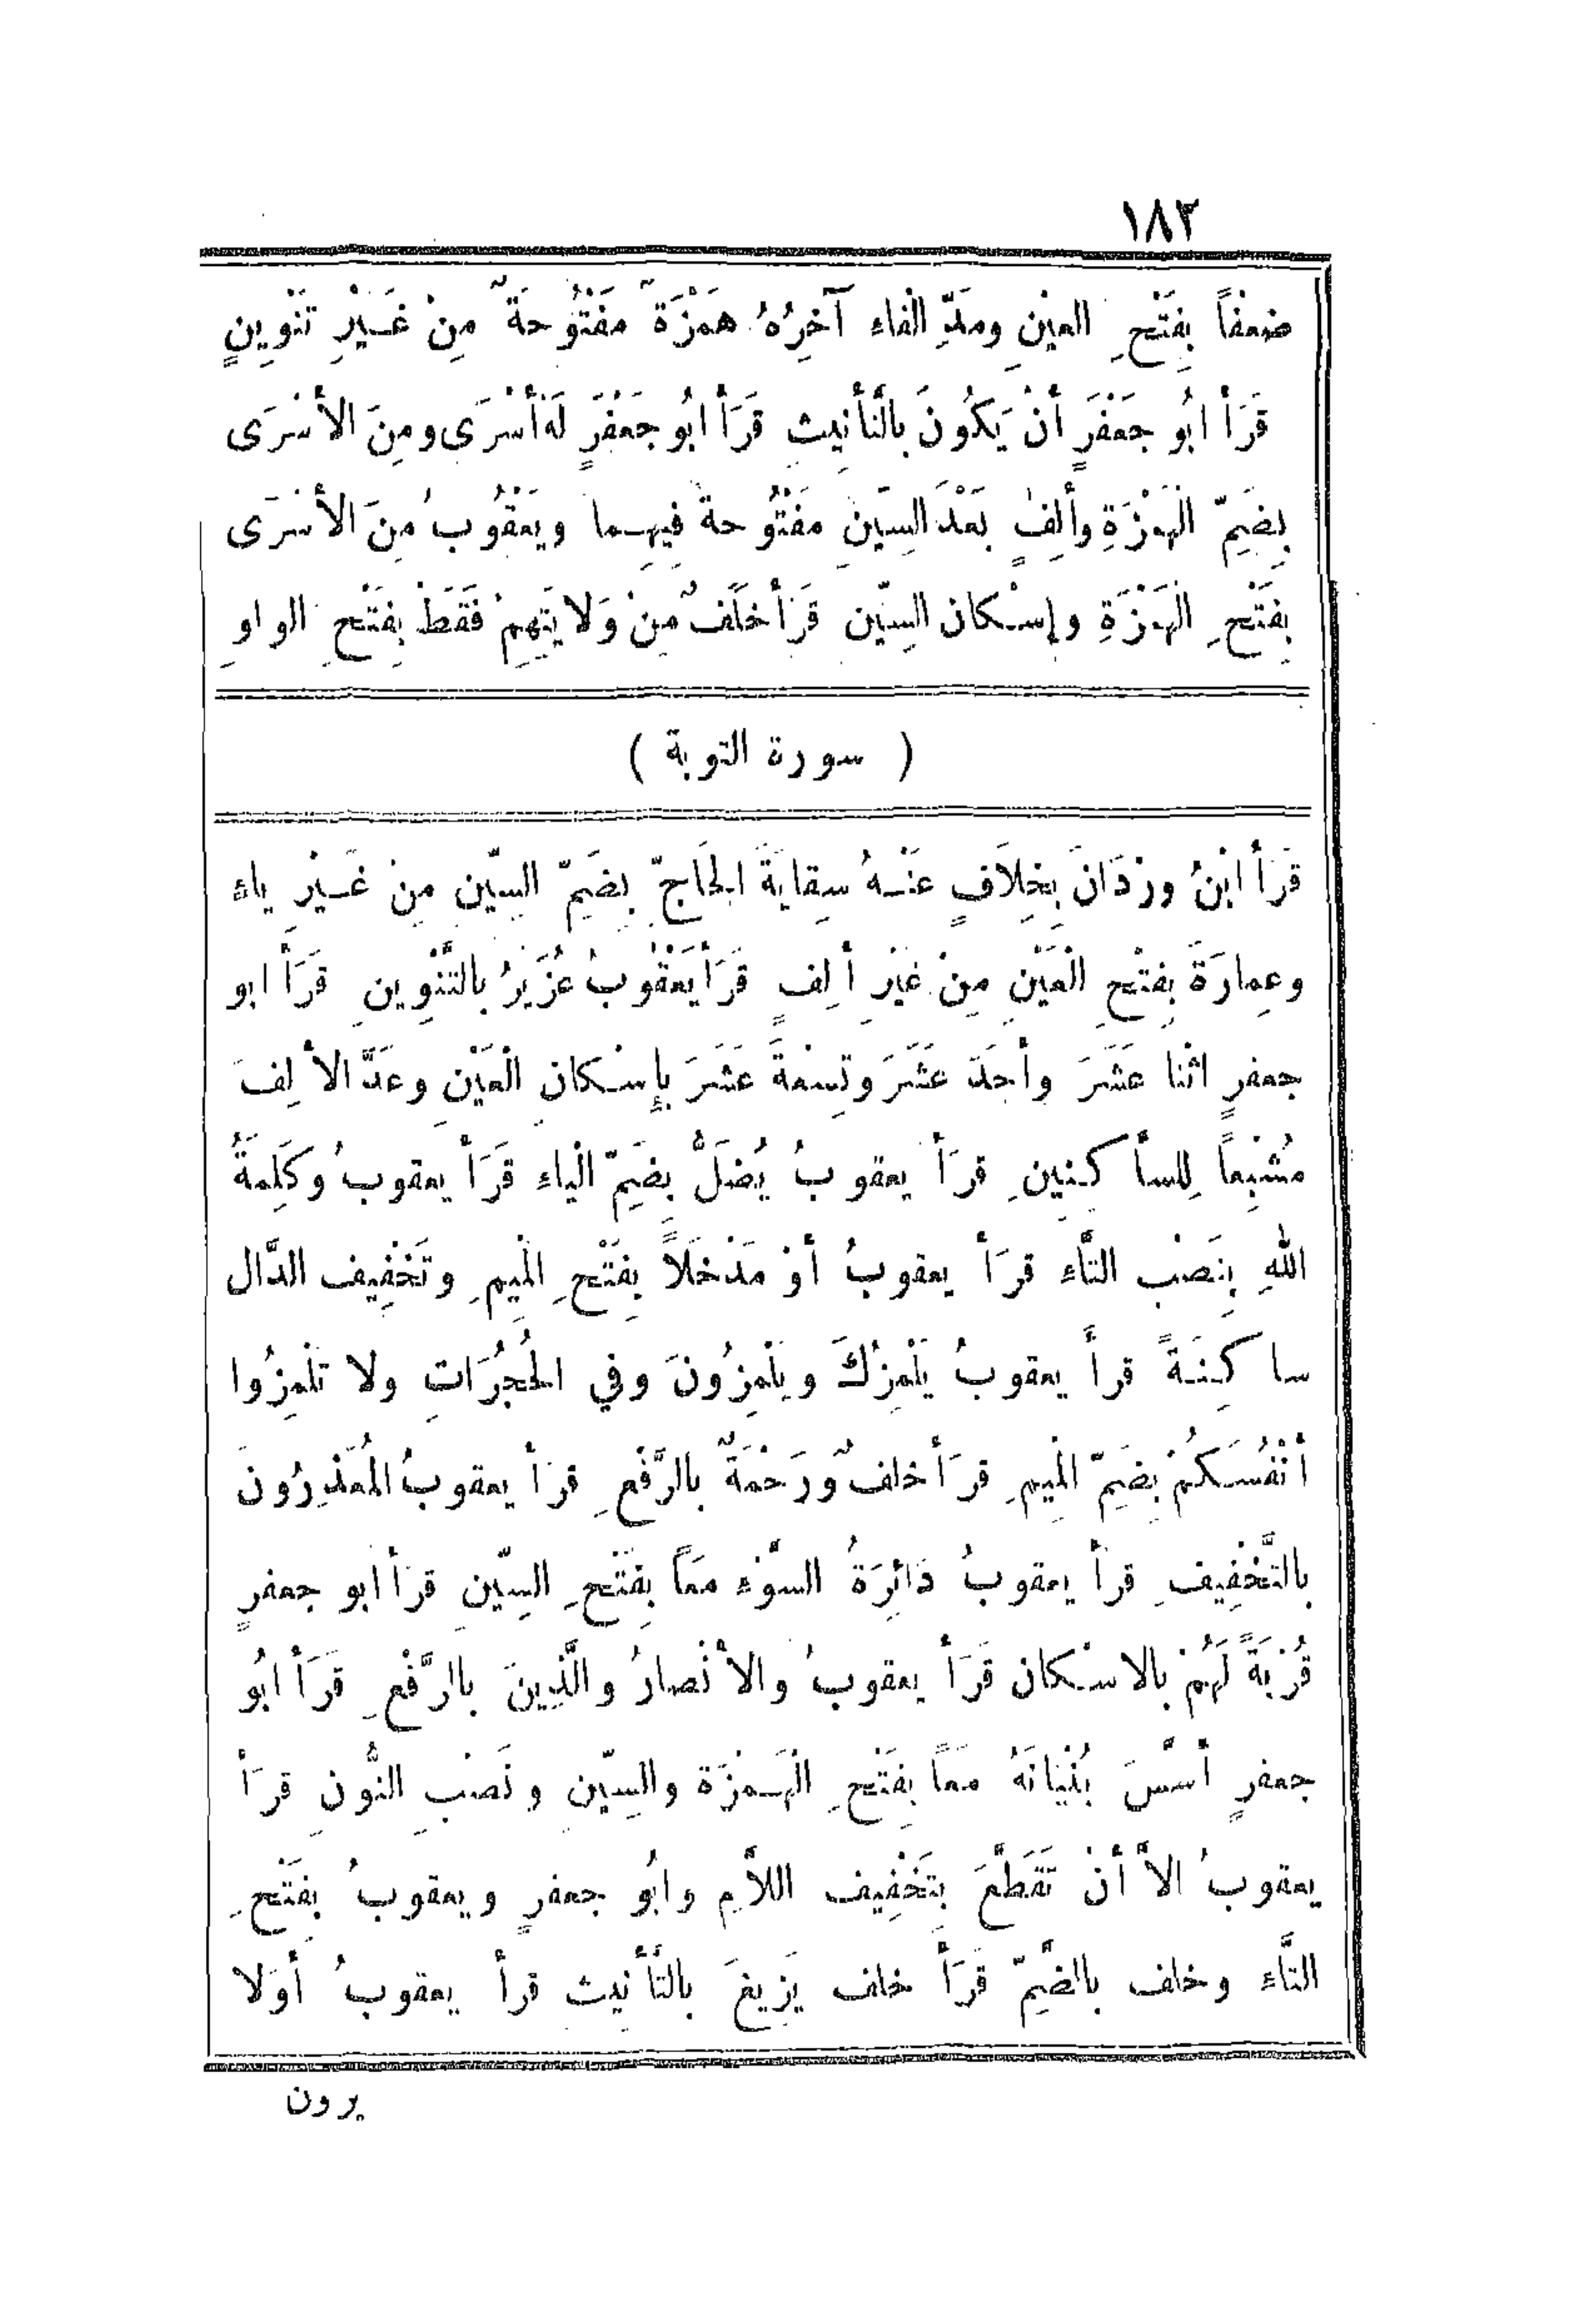 ١٨٢
ضعفاً بِفَتْحِ العيْنِ ومَدِّ الْفاء آخِرُهُ هَمْزَةٌ مَفْتُوحَةٌ مِنْ غَيْرِ تَنْوِينٍ
قَرَأَ ابُو جَعْفَرٍ أنْ يَكُونَ بالتَّأنِيث قَرَأ ابُو جَعْفَرٍ لَهُ أسْرَى ومِنَ الأسْرَى
بِضَمِّ الْهمْزَةِ وألِفٍ بَعْدَ السِّينِ مَفْتُوحة فِيهِما ويَعْقُوبُ مِنَ الأسْرَى
بِفَتْحِ الْهمْزَةِ وإسْكان السِّين قَرَأ خلَفٌ مِنْ وَلايَتِهِمْ فَقَطْ بِفَتْحِ الواوِ
( سورة التوبة )
قَرَأ ابْنُ ورْدَانَ بِخِلاَفٍ عَنْهُ سِقايَةَ الحَاجِّ بِضَمِّ السِّينِ مِنْ غَيْرِ ياء
وعِمارَةَ بِفَتْحِ الْعَيْنِ مِنْ غَيْرِ ألِفٍ قَرَأ يَعْقُوبُ عُزَيْرٌ بالتَّنْوِينِ قَرَأ ابو
جعفرٍ اثْنا عَشَرَ وأحَدَ عَشَرَ وتِسْعَةَ عَشَرَ بِإِسْكانِ الْعَيْنِ وعَدَّ الألِفَ
مُشْبِعاً لِلسأكِنِينِ قرَأ يعقوبُ يُضَلُّ بِضَمِّ الْياءِ قَرَأ يعقوبُ وكَلِمَةُ
اللهِ بِنَصْب التَّاء قرَأ يعقوبُ أوْ مَدْخلاً بِفَتْحِ الْمِيمِ وتَخْفِيف الدَّال
ساكِنَةً قرأ يعقوبُ يَلْمِزُكَ ويَلْمِزُونَ وفي الحُجُرَاتِ ولا تَلْمِزُوا
أنْفُسَكُمْ بِضَمِّ الْمِيمِ قرَأ خلفٌ ورَحْمَةٌ بالرَّفْعِ قرَأ يعقوبُ الْمُعْذِرُونَ
بالتَّخْفِيفِ قرأ يعقوبُ دَائِرَةُ السَّوْء مَعاً بِفَتْحِ السِّينِ قرَأ ابو جعفرٍ
قُرْبَةً لَهُمْ بالاسْكان قَرَأ يعقوبُ والأنْصارُ والَّذِينَ باارَّفْعِ قَرَأ ابُو
جعفرٍ أسَّسَ بُنْيَانَهُ مَعاً بِفَتْحِ الْهَمْزَة والسِّينِ ونَصْبِ النُّونِ قرَأ
يعقوبُ الاَّ أنْ تَقَطَّعَ بِتَخْفِيف اللاَّمِ وابُو جعفرٍ ويعقوبُ بِفَتْحِ
التَّاء وخلف بالضَّمِّ قَرَأ خلف يَزِيغَ بالتَّأنِيث قرأ يعقوبُ أوَلا
يرون